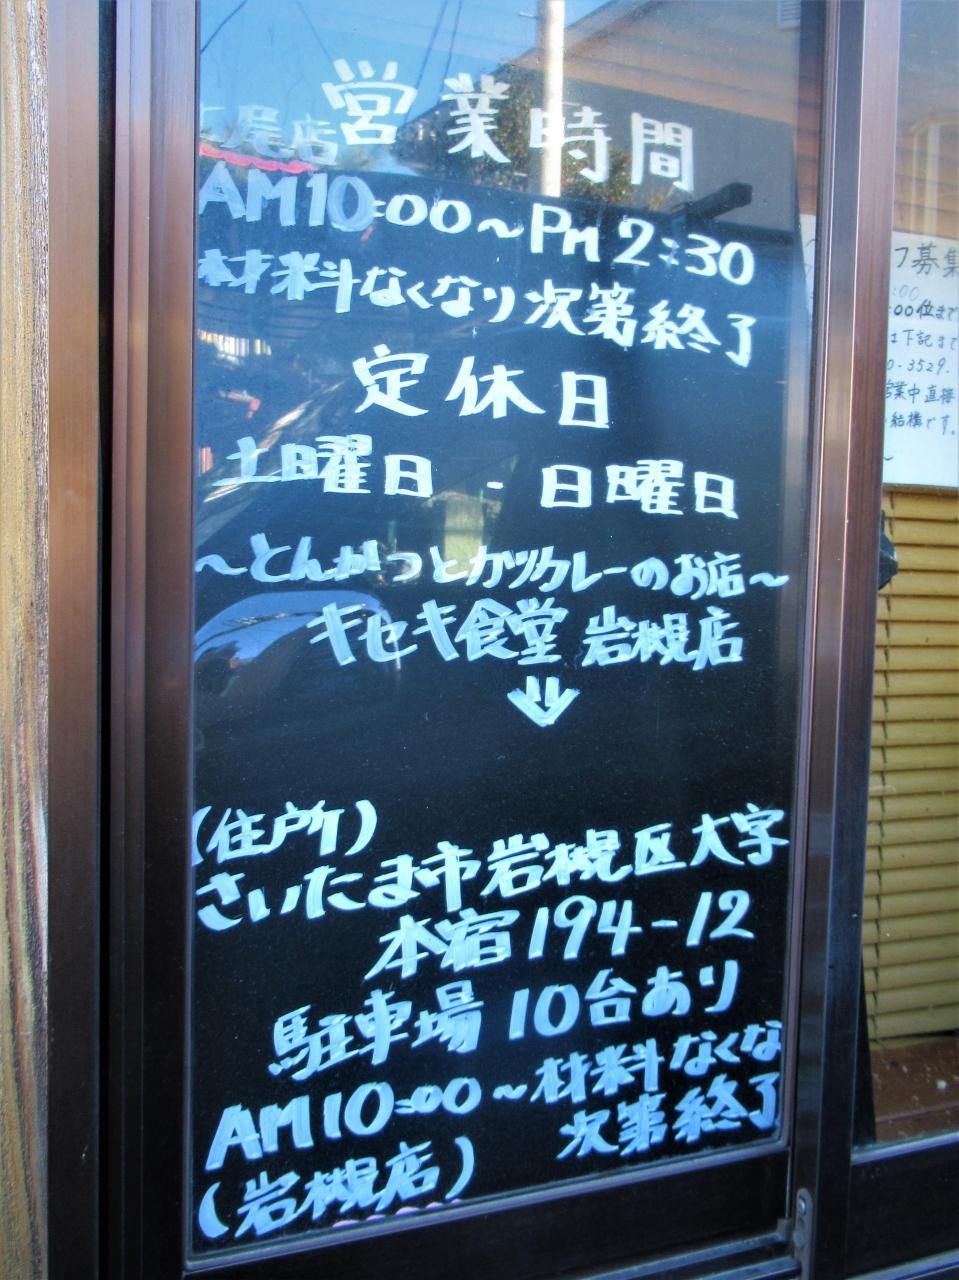 営業時間
尾店
AM10:00～Pm2:30
材料なくなり次第終了
定休日
土曜日・日曜日
～とんかつとカツカレーのお店～
キセキ食堂 岩槻店
↓
(住所)
さいたま市岩槻区大字
本宿194-12
駐車場 10台あり
AM10:00～材料なくな
次第終了
(岩槻店)
フ募集
:00
00位まで
下記まで
0-3529.
営業中直接
結構です。
～